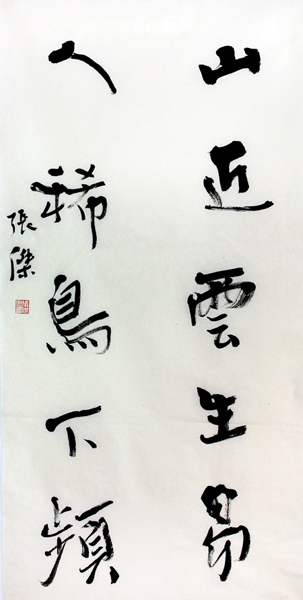 山近雲生易
人稀鳥下頻
張傑